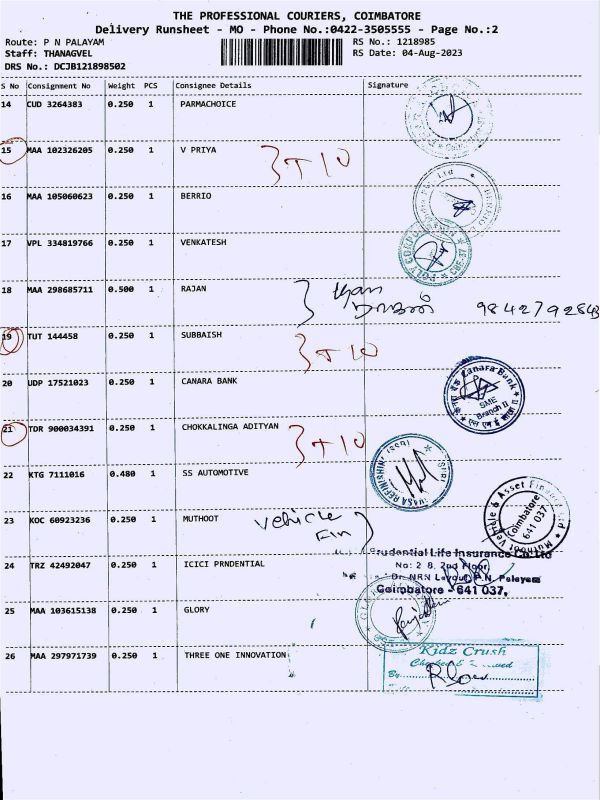 THE PROFESSIONAL COURIERS, COIMBATORE
Delivery Runsheet - MO - Phone No.:0422-3505555 - Page No.:2
Route: P N PALAYAM
Staff: THANAGVEL
DRS No.: DCJB121898502
RS No.: 1218985
RS Date: 04-Aug-2023
S No Consignment No Weight PCS Consignee Details Signature
14 CUD 3264383 0.250 1 PARMACHOICE
15 MAA 102326205 0.250 1 V PRIYA } + 10
16 MAA 105060623 0.250 1 BERRIO
17 VPL 334819766 0.250 1 VENKATESH
POLY CORPU CBE-37
18 MAA 298685711 0.500 1 RAJAN } 9842792843
19 TUT 144458 0.250 1 SUBBAISH } + 10
20 UDP 17521023 0.250 1 CANARA BANK
Canara Bank SME Branch II
21 TDR 900034391 0.250 1 CHOKKALINGA ADITYAN } + 10
22 KTG 7111016 0.480 1 SS AUTOMOTIVE
23 KOC 60923236 0.250 1 MUTHOOT Vehicle Fin }
Muthoot Vehicle & Asset Finance Ltd Coimbatore 641 037
24 TRZ 42492047 0.250 1 ICICI PRNDENTIAL
Prudential Life Insurance Co Ltd
No: 2 8, 2nd Floor,
Dr. NRN Layout, P.N. Palayam
Coimbatore - 641 037.
25 MAA 103615138 0.250 1 GLORY
26 MAA 297971739 0.250 1 THREE ONE INNOVATION
Kidz Crush
By